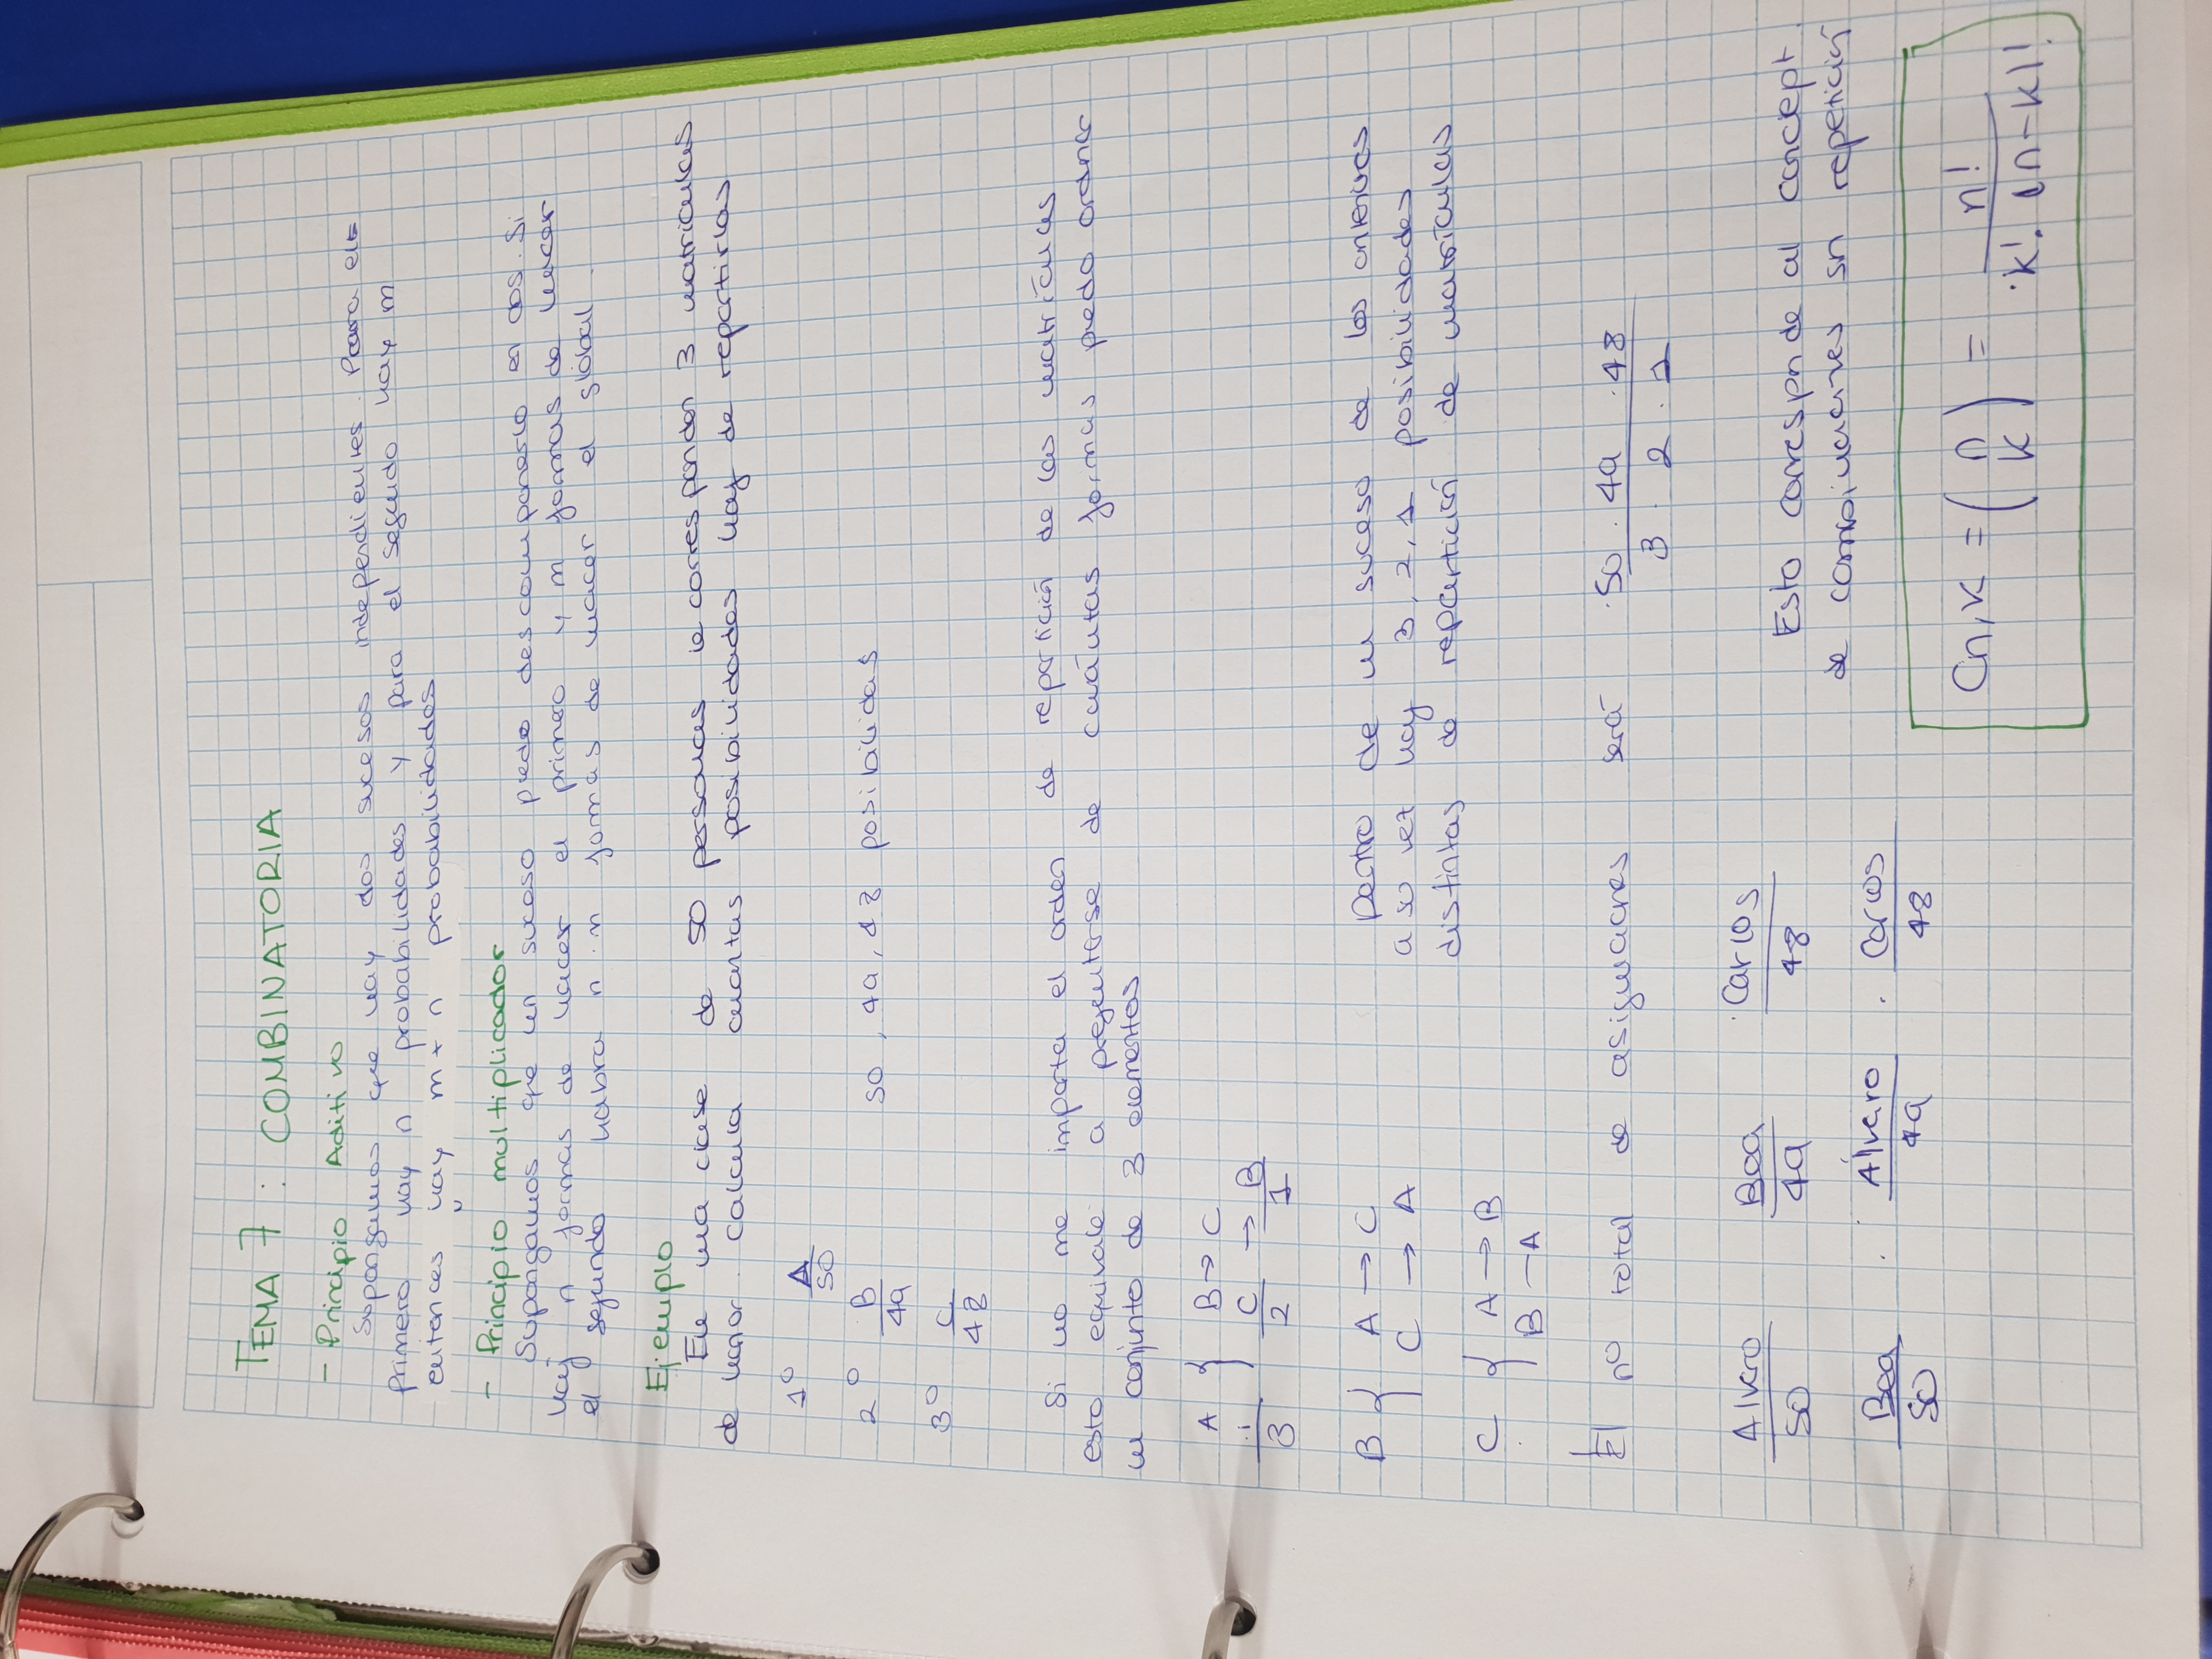 TEMA 7 : COMBINATORIA
- Principio Aditivo
Supongamos que hay dos sucesos independientes. Para el
primero hay n probabilidades y para el segundo hay m
entonces hay m + n probabilidades
- Principio multiplicador
Supongamos que un suceso puedo descomponerlo en dos. Si
hay n formas de hacer el primero y m formas de hacer
el segundo habra n · m formas de hacer el global
Ejemplo
En una clase de 50 personas le corresponden 3 matriculas
de honor calcula cuantas posibilidades hay de repartirlas
1º A/50
2º B/49 50, 49, 48 posibilidas
3º C/48
Si no me importa el orden de reparticion de las matrículas
esto equivale a preguntarse de cuántas formas puedo ordenar
un conjunto de 3 elementos
A } B → C
3 C/2 → B/1
B } A → C
C → A
Dentro de un suceso de los anteriores
a su vez hay 3, 2, 1 posibilidades
distintas de repartición de matrículas
C } A → B
B → A
El nº total de asignaciones será 50 · 49 · 48 / 3 · 2 · 1
Alvaro/50 Bea/49 Carlos/48
Bea/50 · Álvaro/49 · Carlos/48
Esto corresponde al concept
de combinaciones sin repetición
Cn,k = (n k) = n! / k! · (n-k)!